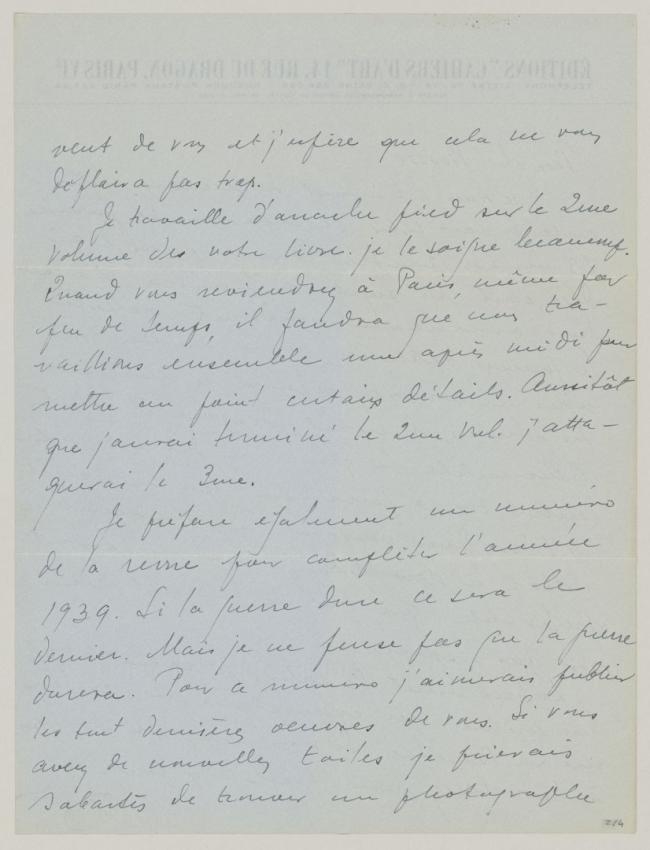 vent de vous et j'espère que cela ne vous
déplaira pas trop.
Je travaille d'arrache pied sur le 2me
volume de votre livre. je le soigne beaucoup.
Quand vous reviendrez à Paris, même pour
peu de temps, il faudra que nous tra-
vaillions ensemble une après midi pour
mettre au point certains détails. Aussitôt
que j'aurai terminé le 2me vol. j'atta-
querai le 3me.
Je prépare également un numéro
de la revue pour compléter l'année
1939. Si la guerre dure ce sera le
dernier. Mais je ne pense pas que la guerre
durera. Pour ce numéro j'aimerais publier
les tout dernières oeuvres de vous. Si vous
avez de nouvelles toiles je prierais
Sabartés de trouver un photographe
214